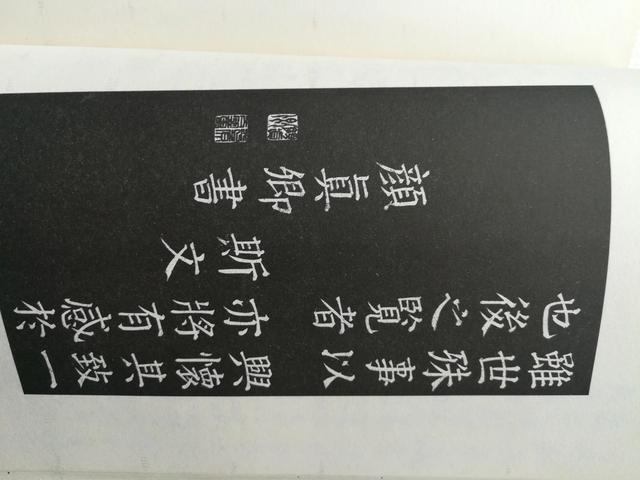 雖世殊事以興懷其致一
也後之覽者亦將有感於
斯文
顔真卿書